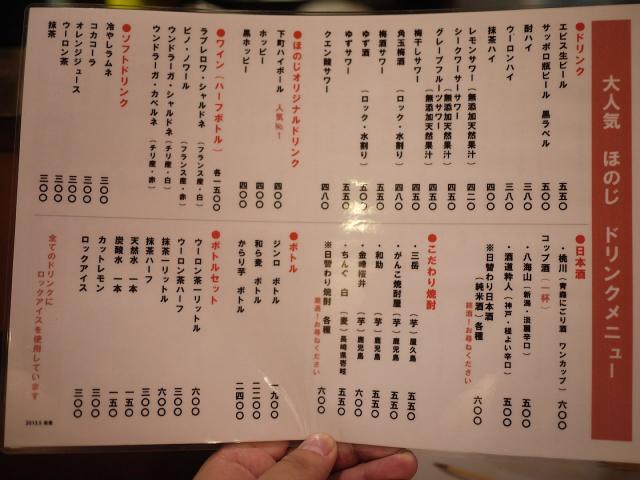 大人気 ほのじ ドリンクメニュー
●ドリンク
エビス生ビール 五五〇
サッポロ瓶ビール 黒ラベル 五〇〇
酎ハイ 三八〇
ウーロンハイ 三八〇
抹茶ハイ 四〇〇
レモンサワー（無添加天然果汁） 四二〇
シークワーサーサワー（無添加天然果汁） 四五〇
グレープフルーツサワー（無添加天然果汁） 四五〇
梅干しサワー 四五〇
角玉梅酒（ロック・水割り） 四八〇
梅酒サワー 五五〇
ゆず酒（ロック・水割り） 五〇〇
ゆずサワー 五五〇
クエン酸サワー 四八〇
●ほのじオリジナルドリンク
下町ハイボール 人気№１ 四〇〇
ホッピー 四〇〇
黒ホッピー 四〇〇
●ワイン（ハーフボトル） 各一五〇〇
ラブレロワ・シャルドネ（フランス産・白）
ピノ・ノワール（フランス産・赤）
ウンドラーガ・シャルドネ（チリ産・白）
ウンドラーガ・カベルネ（チリ産・赤）
●ソフトドリンク
冷やしラムネ 三〇〇
コカコーラ 三〇〇
オレンジジュース 三〇〇
ウーロン茶 三〇〇
抹茶 三〇〇
●日本酒
・桃川（青森にごり酒 ワンカップ） 六〇〇
コップ酒（一杯）
・八海山（新潟・淡麗辛口） 五五〇
・酒道粋人（神戸・程よい辛口） 五〇〇
※日替わり日本酒（純米酒）各種 六〇〇
銘酒！お尋ねください
●こだわり焼酎
・三岳（芋）屋久島 五五〇
・がんこ焼酎屋（芋）鹿児島 五五〇
・和助（芋）鹿児島 五五〇
・金峰櫻井（芋）鹿児島 六〇〇
・ちんぐ 白（麦）長崎県壱岐 五五〇
※日替わり焼酎 各種 六〇〇
厳選！お尋ねください
●ボトル
ジンロ ボトル 一九〇〇
和ら麦 ボトル 二二〇〇
からり芋 ボトル 二四〇〇
●ボトルセット
ウーロン茶一リットル 六〇〇
ウーロン茶ハーフ 三〇〇
抹茶一リットル 六〇〇
抹茶ハーフ 三〇〇
天然水 一本 一五〇
炭酸水 一本 一五〇
カットレモン 三〇〇
ロックアイス 三〇〇
全てのドリンクに
ロックアイスを使用しています